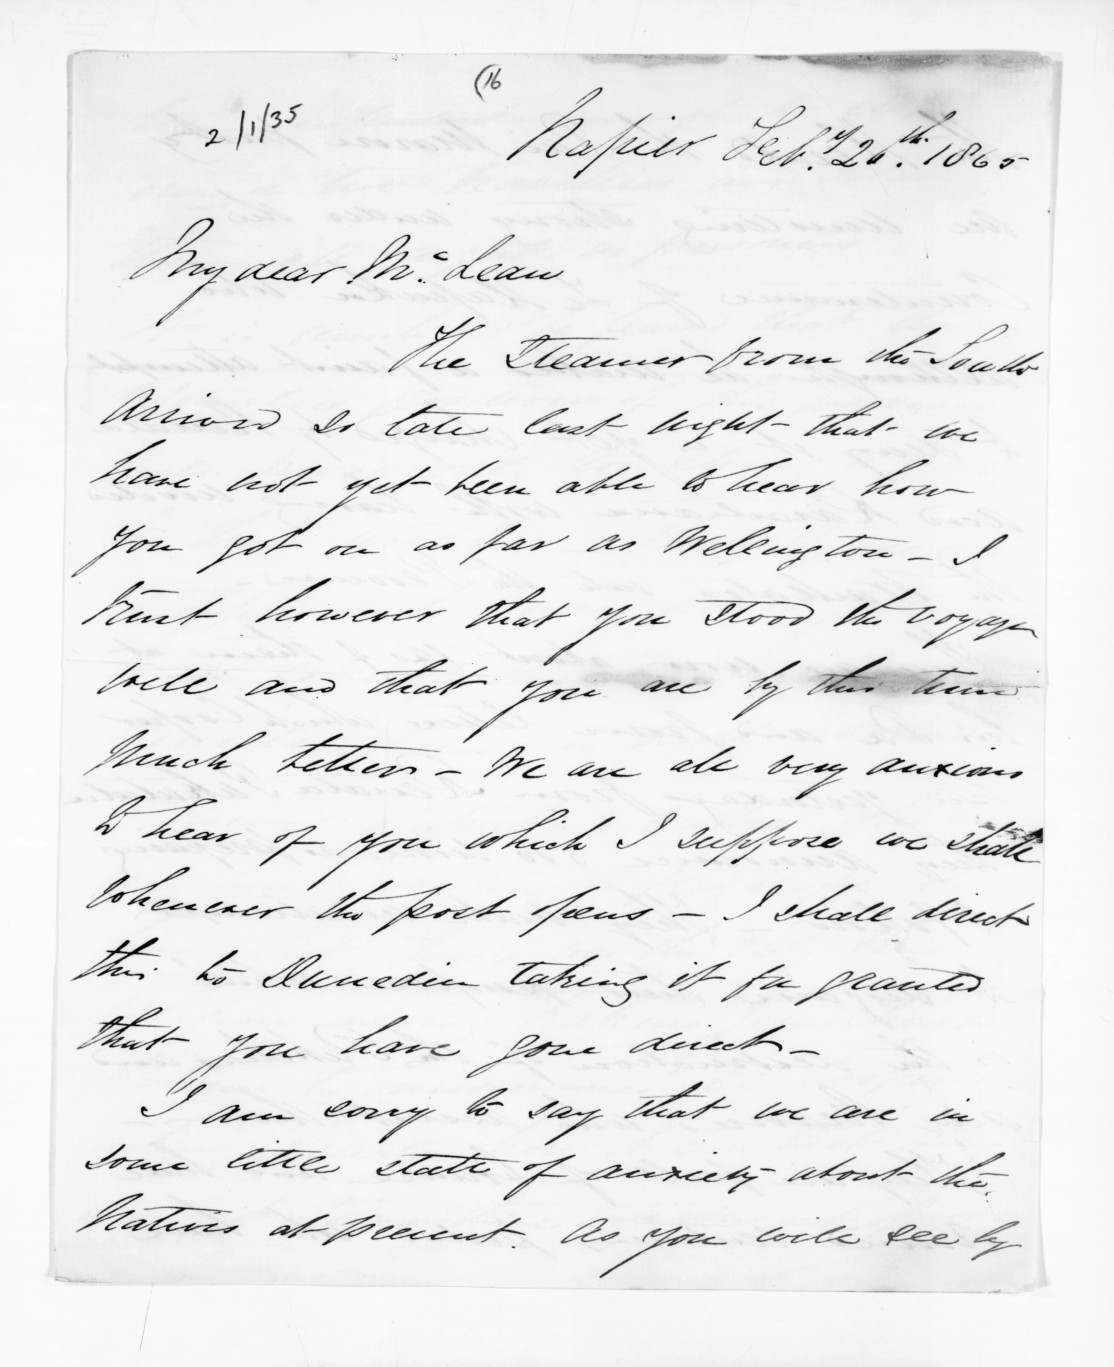 (16
2/1/35
Napier Feby. 26th. 1865
My dear Mc.Lean
The Steamer from the South
arrived so late last night that we
have not yet been able to hear how
you got on as far as Wellington - I
trust however that you stood the voyage
well and that you are by this time
much better - We are all very anxious
to hear of you which I suppose we shall
whenever the post opens - I shall direct
this to Dunedin taking it for granted
that you have gone direct -
I am sorry to say that we are in
some little state of anxiety about the
Natives at present. As you will see by